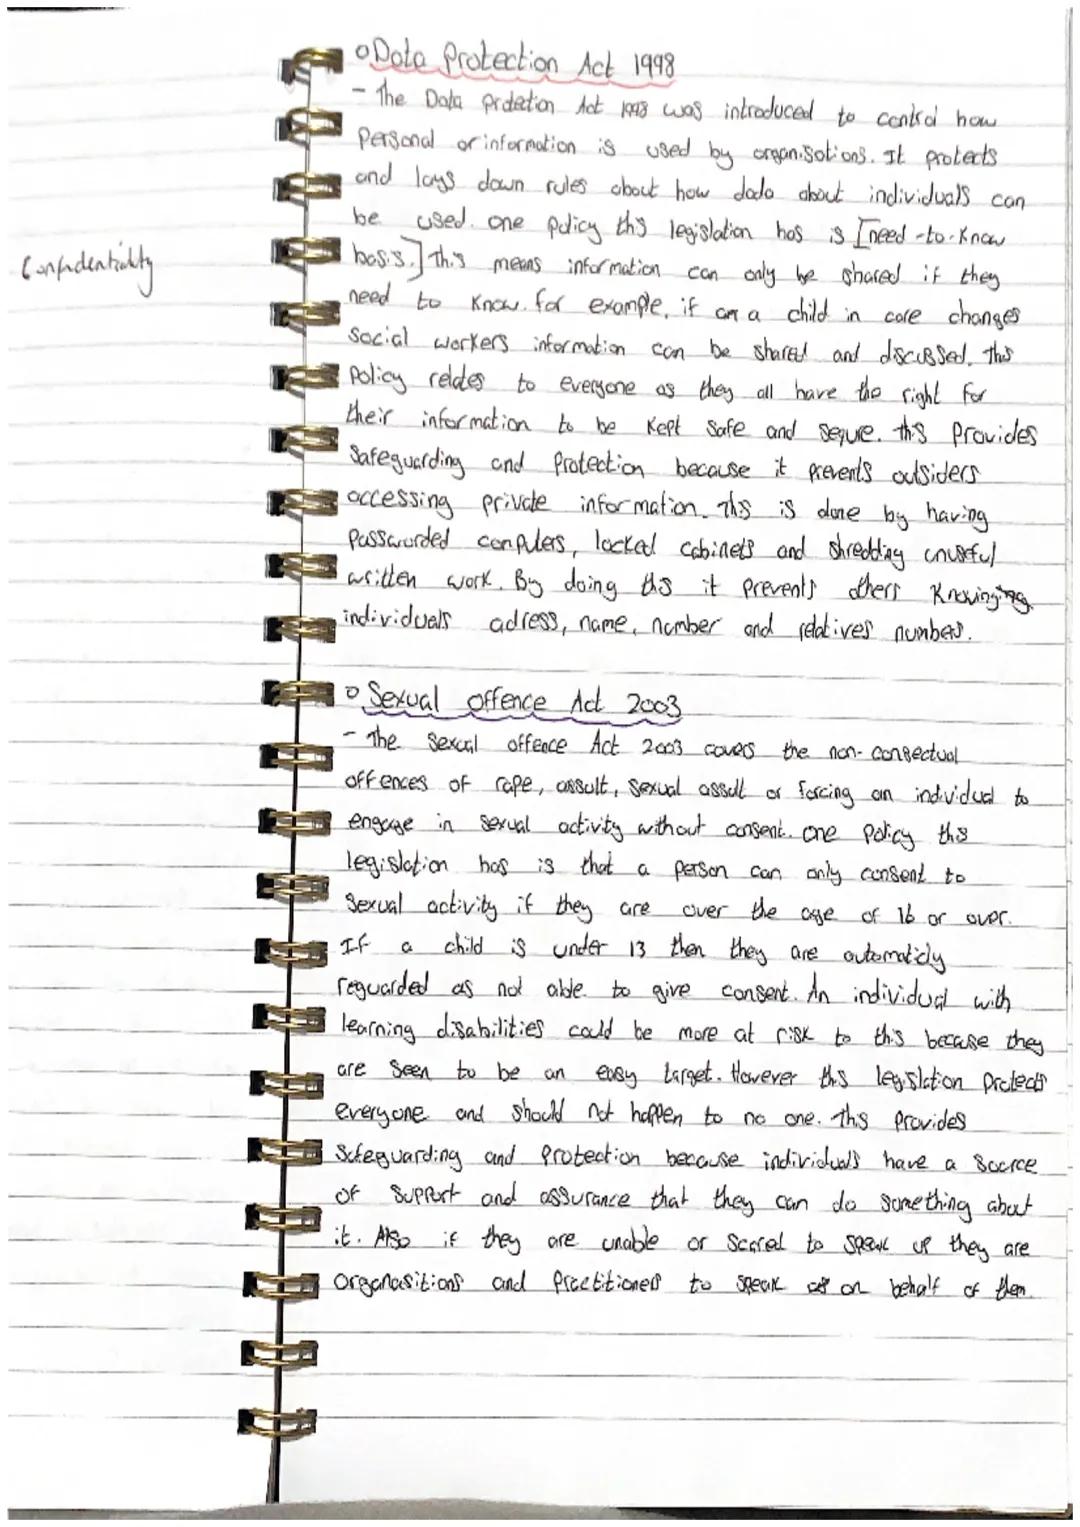 Confidentiality
Data Protection Act 1998
- The Data protection Act 1998 was introduced to control how
Personal or information is used by organisations. It protects
and lays down rules about how data about individuals can
be used. one policy this legislation has is [need-to-know
basis.] This means information can only be shared if they
need to know. for example, if a child in care changes
social workers information can be shared and discussed. this
Policy relates to everyone as they all have the right for
their information to be kept safe and sequre. this provides
Safeguarding and protection because it prevents outsiders
accessing private information. This is done by having
passworded computers, locked cabinets and shredding unuseful
written work. By doing this it prevents others knowing
individuals adress, name, number and relatives numbers.
Sexual offence Act 2003
- The sexual offence Act 2003 covers the non-consectual
offences of rape, assult, sexual assult or forcing an individual to
engage in sexual activity without consent. one policy this
legislation has is that a person can only consent to
sexual activity if they are over the age of 16 or over.
If a child is under 13 then they are automaticly
reguarded as not able to give consent. An individual with
learning disabilities could be more at risk to this because they
are seen to be an easy target. However this legislation protects
everyone and should not happen to no one. this provides
safeguarding and protection because individuals have a source
of support and assurance that they can do something about
it. Also if they are unable or scared to speak up they are
organasitions and practitioners to speak on behalf of them.